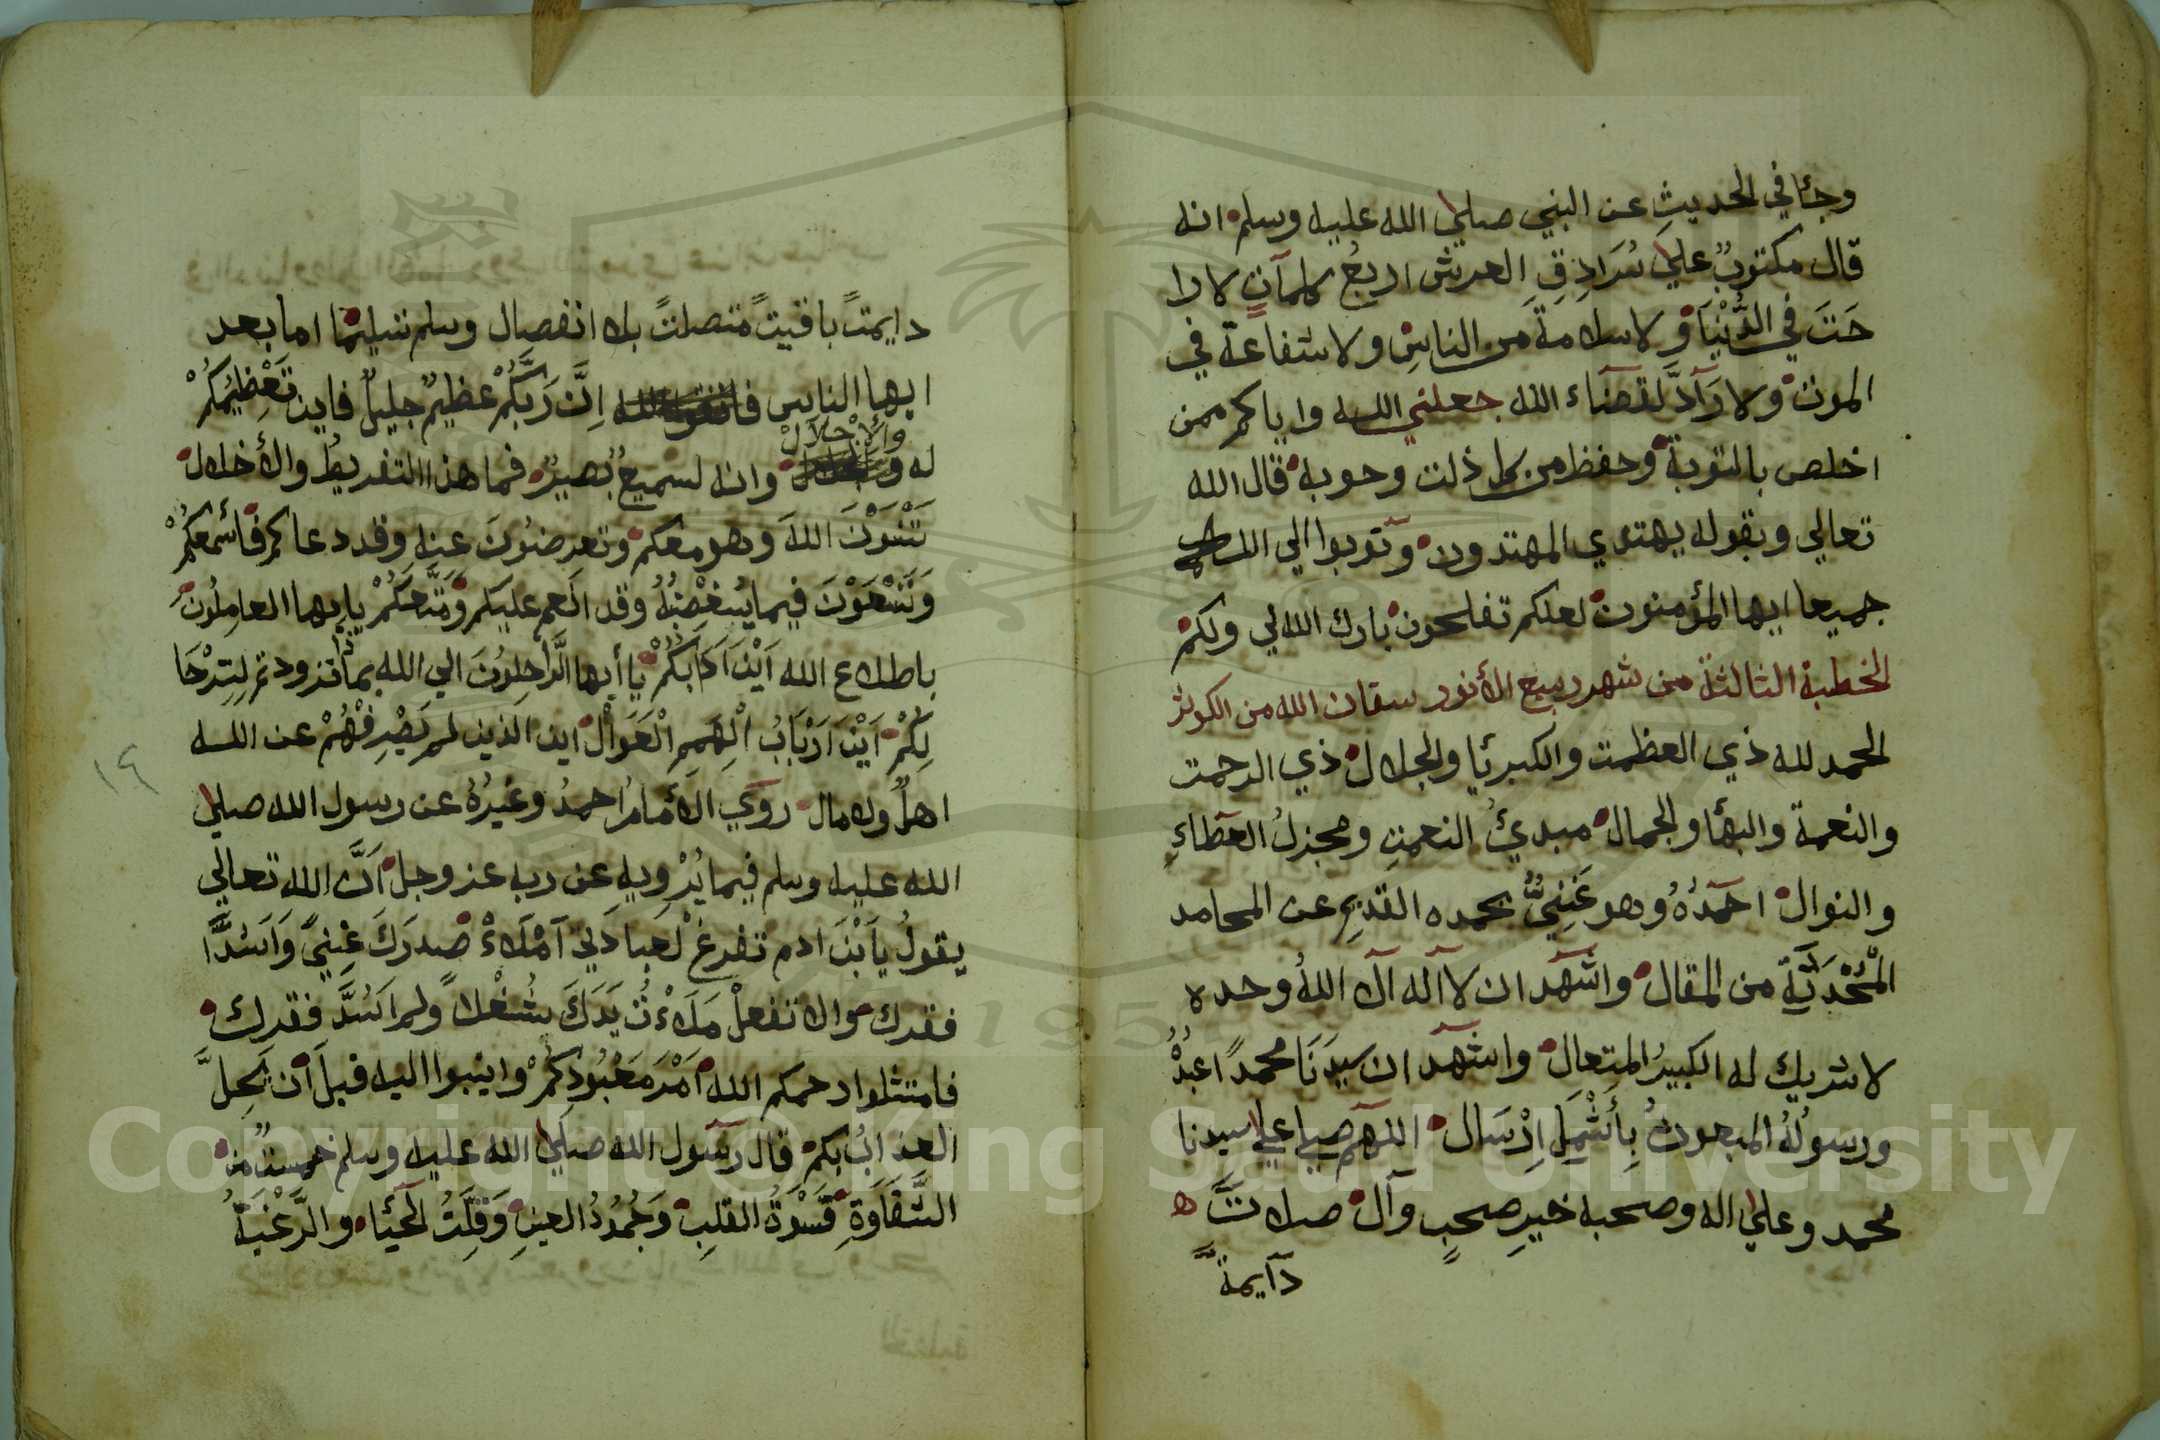 وجئا في الحديثِ عن النبي صلي الله عليه وسلم انه
قال مكتوبٌ علي سُرَادِقِ العرش اربعُ كلمآتٍ لا را
حَتَ في الدُّنْيَا ولا سلامةَ من الناسِ ولا شفاعةَ في
الموت ولا رَآدَّ لقضَاء الله جعلني الله واياكم ممن
اخلص بالتوبة وحفظ من كل ذلت وحوبة قال الله
تعالي وبقوله يهتدي المهتدون وتوبوا الي الله
جميعا ايها المؤمنون لعلكم تفلحون بارك الله لي ولكم
الخطبة الثالثة من شهر ربيع الأنور سقان الله من الكوثر
الحمد لله ذي العظمت والكبرئيا والجلال ذي الرحمت
والنعمة والبهئا والجمال مبدئُ النعمتِ ومجزلُ العطاءِ
والنوال احمَدُهُ وهو غَنِيٌّ بحمده القديمِ عن المحامد
المُحْدَثَةِ من المقال واشهَد ان لا آله الا اللهُ وحده
لا شريك له الكبيرُ المتعال واشهَد ان سيدَنَا محمدًا عبدُهُ
ورسولُهُ المبعوثُ بِأَشْمَلِ اِرْسَال اللهم صلي علي سيدنا
محمد وعلي اله وصحبه خيرِ صحبٍ وآل صلاتً
دآيمةً
دايمتً باقيتً متصلتً بلا انفصال وسلم تسليمًا اما بعد
ايها الناس اِنَّ رَبَّكُمْ عظيمٌ جليلٌ فاين تَعْظِيمُكُمْ
له والأجْلَالْ وانه لسميعٌ بصيرٌ فما هذا التفريطُ والأخلال
تَنْسَوْنَ اللهَ وهو معكم وتعرضُونَ عنهِ وقد دعاكم فأسْمَعَكُمْ
وَتَسْعَوْنَ فيما يُبغِضُهُ وقد انعم عليكم وَمَتَّعَكُمْ يا ايها العامِلُونَ
باطلاع الله اَيْنَ اَدَابَكُمْ يا أيها الرَّاحِلُونَ الي الله بماذا تزودتم لِتِرْحَا
لِكُمْ اَيْنَ اَرْبَابُ الْهِمَمِ الْعَوَالْ اين الذين لم يَصْرِفْهُمْ عن الله
اهلٌ ولا مال روَي الأمامُ احمدُ وغيرُهُ عن رسول الله صلي
الله عليه وسلم فيما يَرْوِيهِ عن ربه عز وجل اَنَّ الله تعالي
يقولُ يا بْنَ ادم تفرغْ لعبادتي آمْلَاءْ صْدرَكَ غِنيً وَاَسُدَّ
فقرك والا تفعلْ مَلَاءْتُ يَدَكَ شُغْلاً ولم اَسُدَّ فقرك
فامتثلوا رحمكم الله اَمْرَ مَعْبُودِكُمْ وانيبوا اليه قبلَ اَن يَحِلَّ
العذابُ بكم قال رسول الله صلي الله عليه وسلم خمستٌ من
الشَّقَاوَةِ قَسْوَةُ القلبِ وَجُمُودُ العينِ وَقِلَّتُ الحَيَاء والرَّغْبَةُ
١٩
Copyright © King Saud University
195